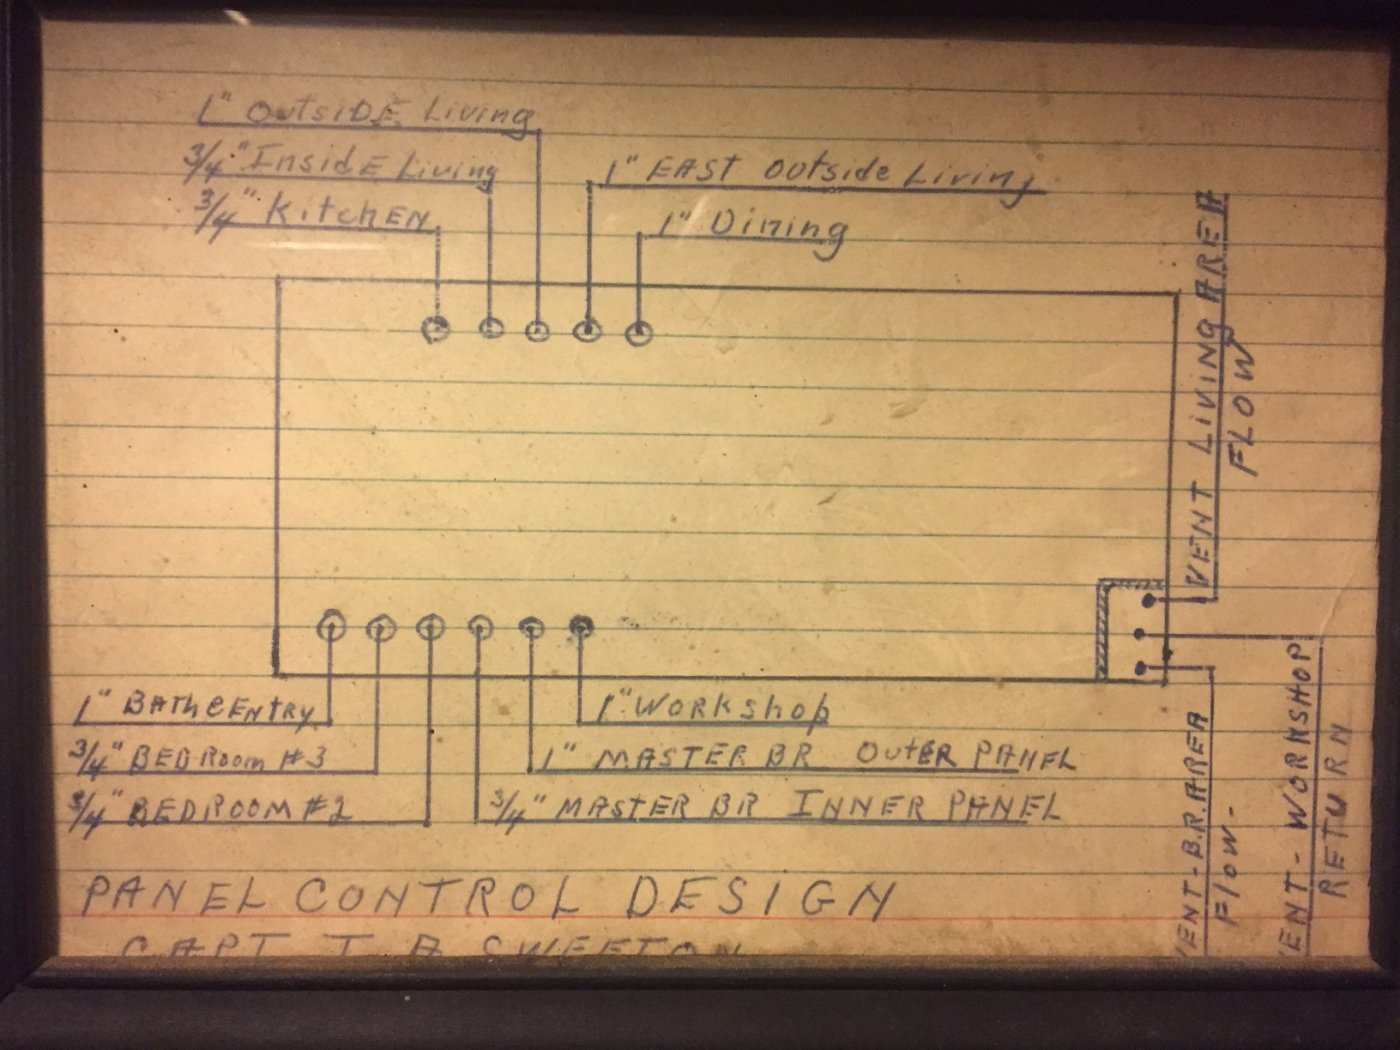 1" OutsiDE Living
3/4" InsidE Living
3/4" KitchEN
1" EAST outside Living
1" Dining
VENT LIVING AREA
FLOW
1" BAth & ENTRY
3/4" BEDRoom #3
3/4" BEDROOM #2
1" WORKshop
1" MASTER BR OutER PANEL
3/4" MASTER BR INNER PANEL
VENT-B.R. AREA
Flow-
VENT-WORKSHOP
RETURN
PANEL CONTROL DESIGN
CAPT T A SWEETON